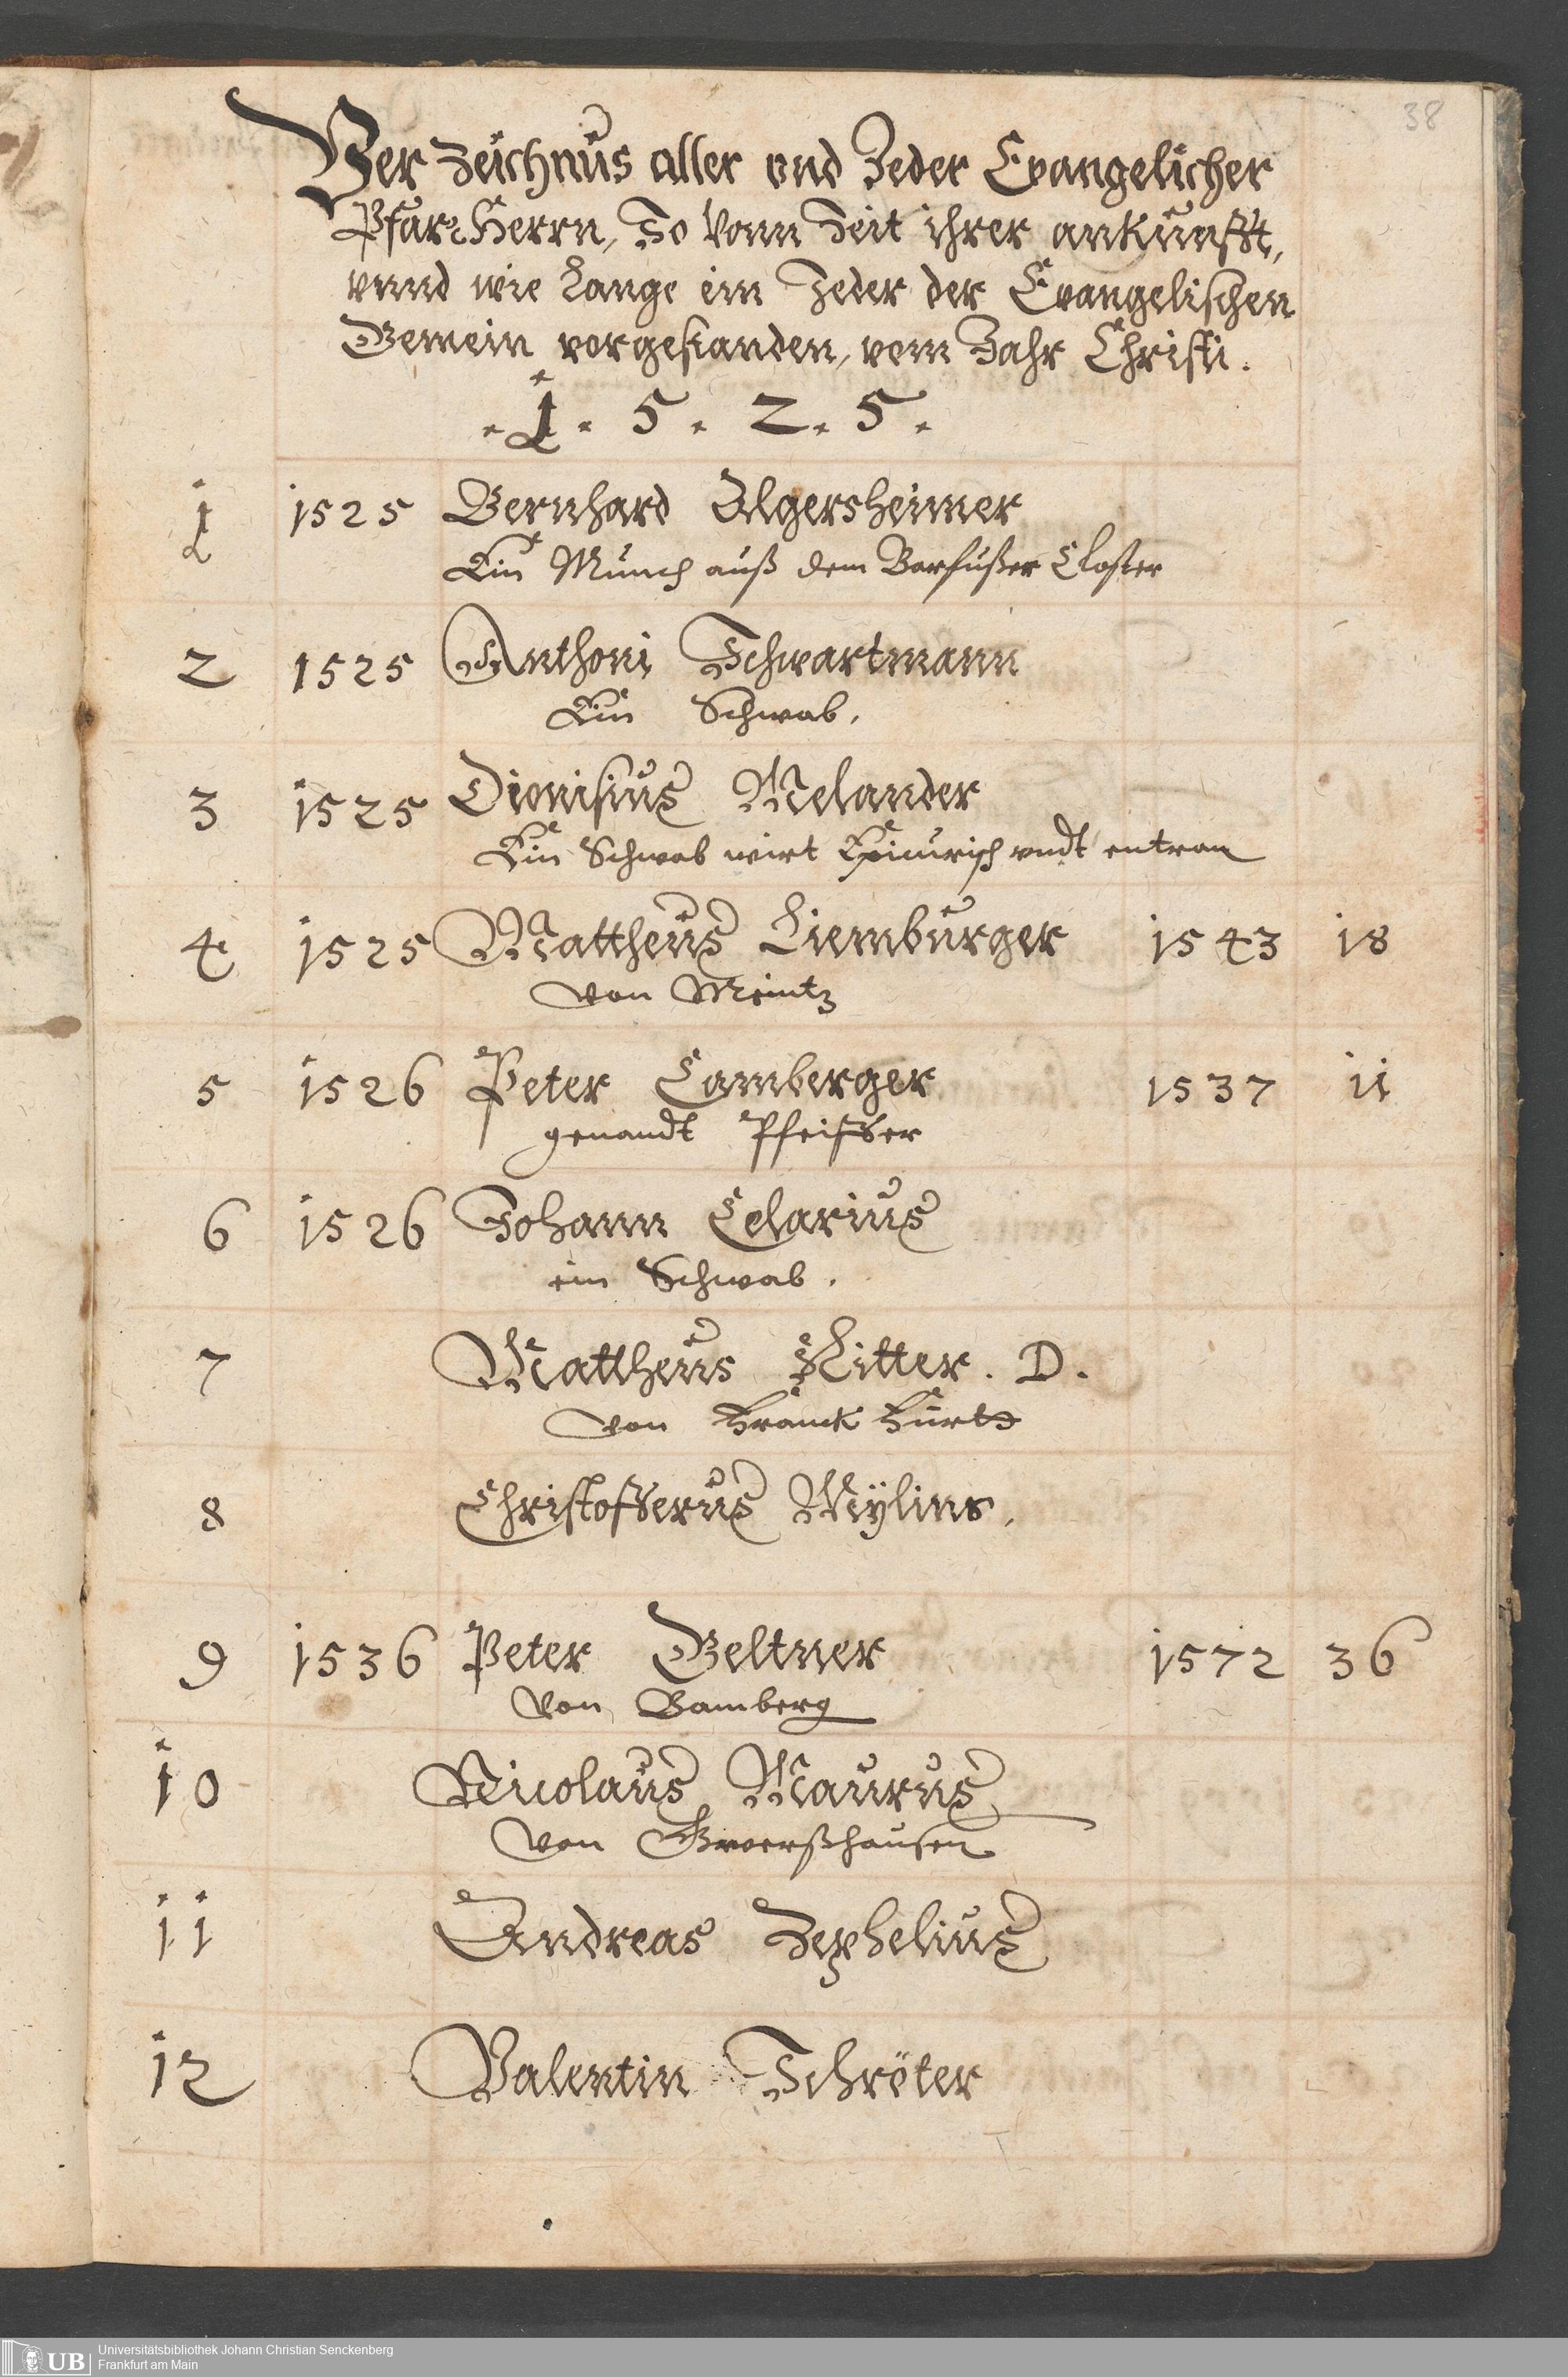 38
Verzeichnus aller vnd Jeder Evangelicher
Pfarrherrn, So Vonn Zeit ihrer ankunfft,
vnnd wie Lange ein Jeder der Evangelischen
Gemein vorgestanden, vom Jahr Christi.
. 1 . 5 . 2 . 5 .
1 1525 Bernhard Algersheimer
Ein Münch auß dem Barfußer Closter
2 1525 Anthoni Schwartmann
Ein Schwab.
3 1525 Dionisius Melander
Ein Schwab wirt Epicurisch vndt entran
4 1525 Mattheus Liemburger 1543 18
von Meintz
5 1526 Peter Camberger 1537 11
genandt Pfeiffer
6 1526 Johann Celarius
ein Schwab.
7 Mattheus Ritter. D.
von Franckfurtt
8 Christofferus Meÿlius.
9 1536 Peter Geltner 1572 36
Von Bamberg
10 Nicolaus Maurus
von
11 Andreas Zephelius
12 Valentin Schröter
UB Universitätsbibliothek Johann Christian Senckenberg
Frankfurt am Main